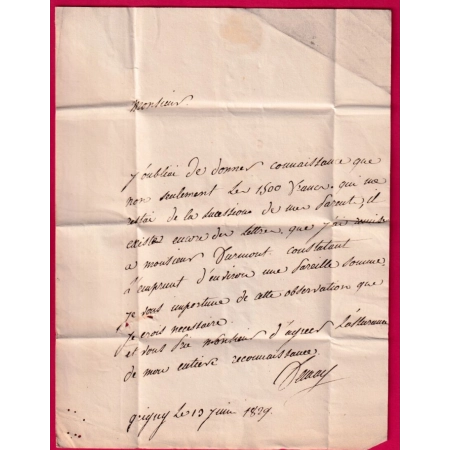 Monsieur
j'oubliai de donner connaissance que
non seulement les 1500 francs qui me
restai de la sucession de mes Parent, il
existe encore des lettres, que j'ai remise
a monsieur Durmont constatant
l'emprunt d'environ une pareille somme.
je vous importune de cette observation que
je crois necessaire.
et vous prie monsieur d'agreer l'assurance
de mon entiere reconnaissance.
grigny Le 13 juin 1829